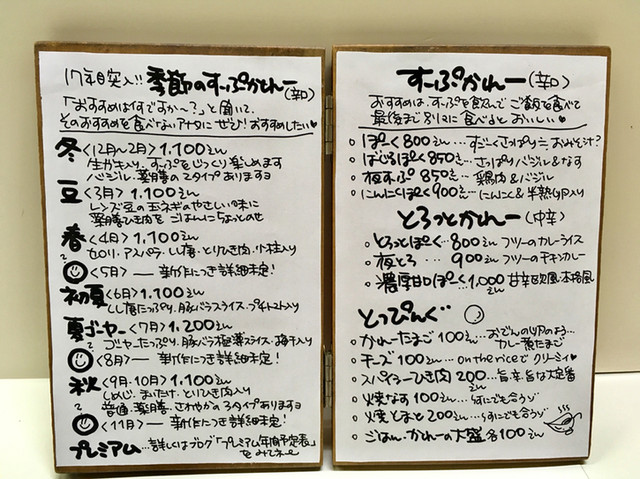 17年目突入!! 季節のすーぷかれー(辛口)
「おすすめはなんですか〜?」と聞いて、
そのおすすめを食べないアナタにぜひ!おすすめしたい♥
冬<12月〜2月>1,100えん
生かキ入り。すーぷをじっくり楽しめます
バジル、薬膳の2タイプありますョ
豆<3月>1,100えん
レンズ豆の玉ネギのやさしい味に
薬膳ひき肉をごはんにちょっとのせ
春<4月>1,100えん
セロリ・アスパラ・しし唐・とりひき肉・小柱入り
<5月>― 新作につき詳細未定!
初夏<6月>1,100えん
しし唐たっぷり、豚バラスライス・プチトマト入り
夏ゴーヤー<7月>1,200えん
ゴーヤーたっぷり、豚バラ極薄スライス・梅干入り
<8月>― 新作につき詳細未定!
秋<9月・10月>1,100えん
しめじ・まいたけ・とりひき肉入り
普通・薬膳・さわやかの3タイプありますョ
<11月>― 新作につき詳細未定!
プレミアム…詳しくはブログ「プレミアム年間予定表」
をみてネー
すーぷかれー(辛口)
おすすめは、すーぷを飲んで ご飯を食べて
最後まで別々に食べるとおいしい♥
ぽーく 800えん…すごーくさっぱり=おみそ汁?
ばじるぽーく 850えん…さっぱりバジル&なす
夜すぷ 850えん…鶏肉&バジル
にんにくぽーく 900えん…にんにく&半熟卵入り
とろっとかれー(中辛)
とろっとぽーく…800えん フツーのカレーライス
夜とろ… 900えん フツーのチキンカレー
濃厚甘口ぽーく 1,000えん 甘辛欧風本格風
とっぴんぐ
かれーたまご 100えん…おでんの卵のよう…
カレー煮たまご
チーズ 100えん…on the riceで クリーミィ♥
スパイシーひき肉 200えん…旨辛・旨な定番
火焼なす 100えん…なににでも合うゾ
火焼とまと 200えん…なににでも合うゾ
ごはん・かれーの大盛 各100えん